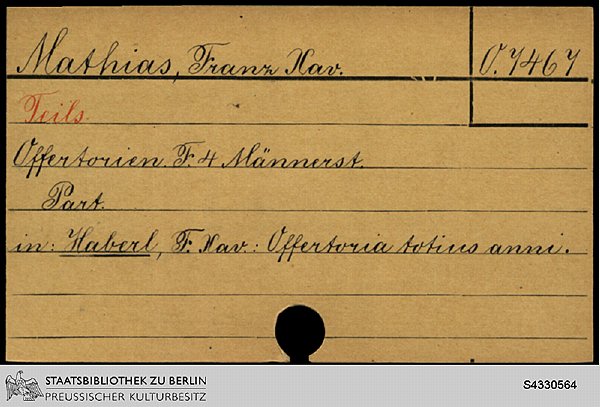 Mathias, Franz Xav.
O. 7467
Teils.
Offertorien. F. 4 Männerst.
Part.
in: Haberl, F. Xav.: Offertoria totius anni.
STAATSBIBLIOTHEK ZU BERLIN
PREUSSISCHER KULTURBESITZ
S4330564